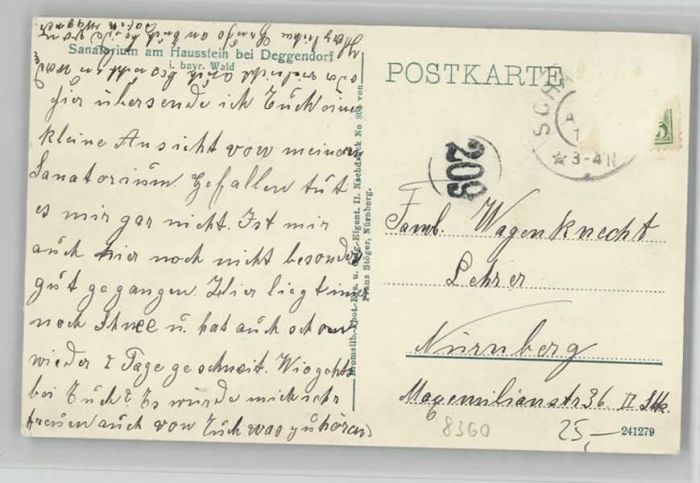 Sanatorium am Hausstein bei Deggendorf
i. bayr. Wald
hier übersende ich Euch eine
kleine Ansicht von meinem
Sanatorium. Gefallen tut
es mir gar nicht. Ist mir
auch hier noch nicht besonders
gut gegangen. Hier liegt immer
noch Schnee u. hat auch schon
wieder 2 Tage geschneit. Wie gehts
bei Euch? Es würde mich sehr
freuen auch von Euch was zu hören
Bromsilb.-Phot.-Drs. u. Orig.-Eigent. II. Nachdruck No 305 von
Hans Stöger, Nürnberg.
POSTKARTE
SCH
3-4 N
5
209
Famb. Wagenknecht
Lehrer
Nürnberg
Maxemilianstr 36 II Stk.
8360
25,-
241279